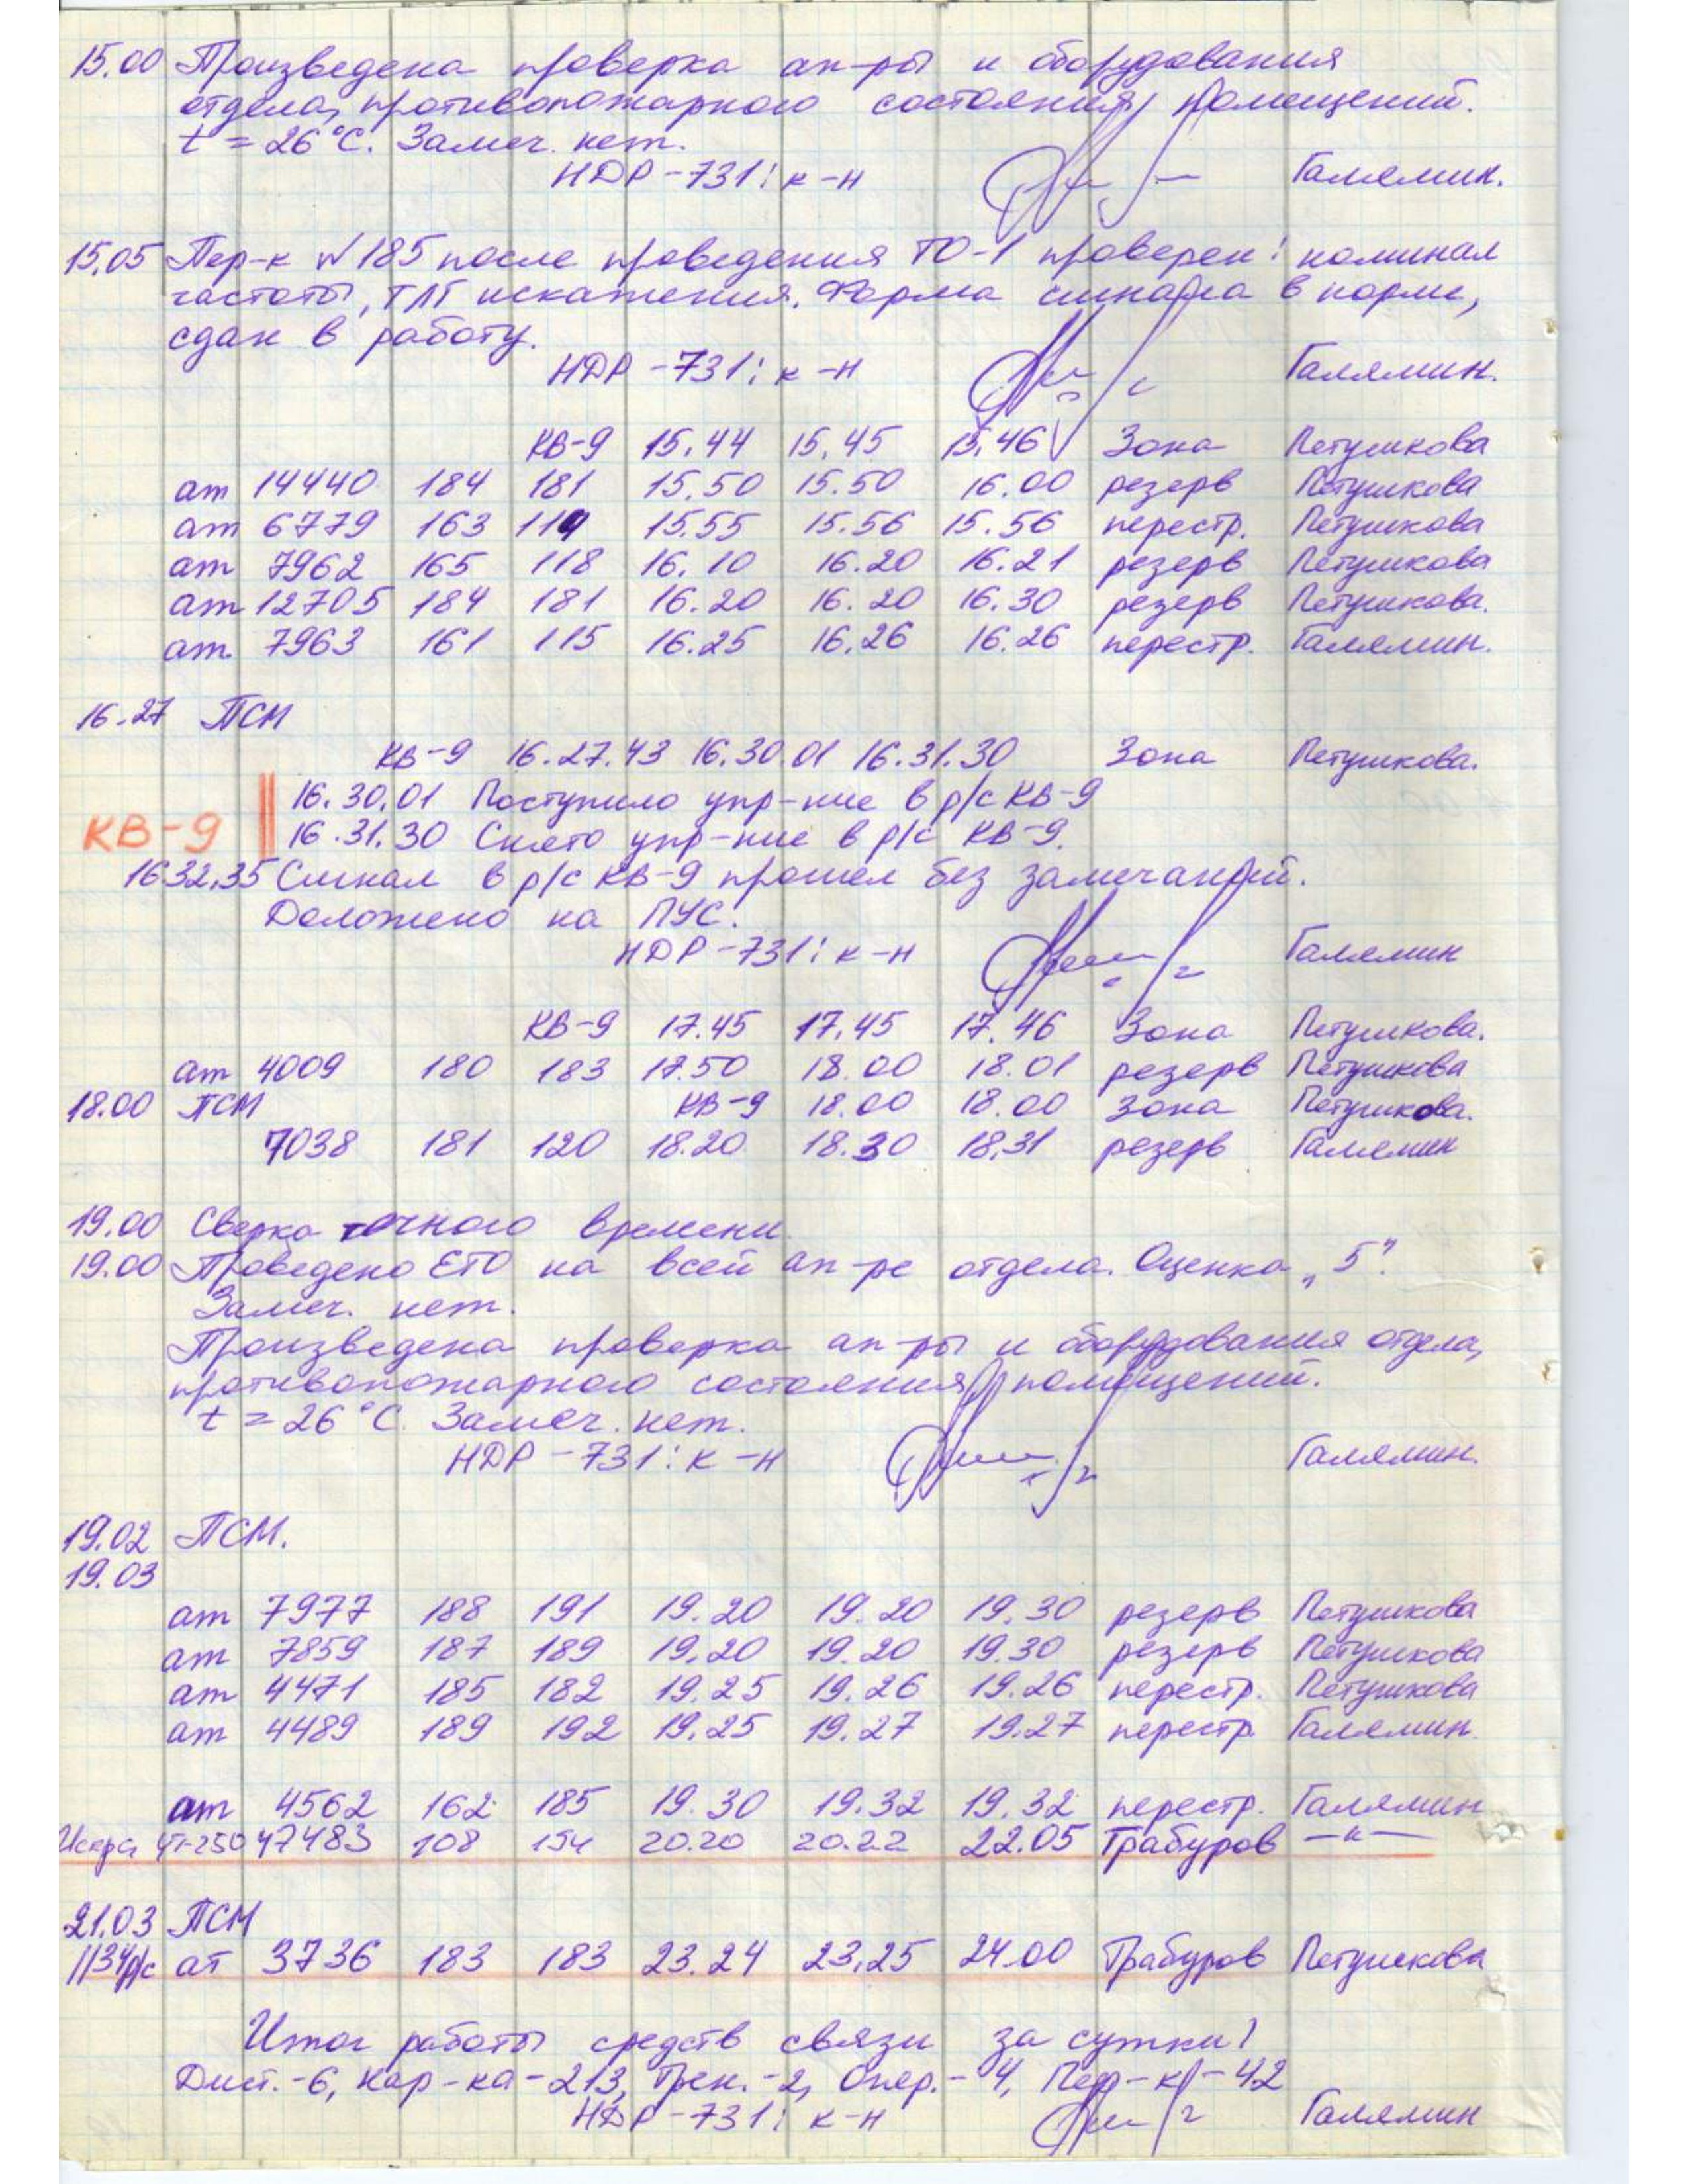 15.00 Произведена проверка ап-ры и оборудования
отдела, противопожарного состояния помещений.
t = 26°C. Замеч. нет.
НДР-731: к-н Галямин.
15.05 Пер-к №185 после проведения ТО-1 проверен: номинал
частоты, ТЛГ искажения. Форма сигнала в норме,
сдан в работу.
НДР-731: к-н Галямин.
КВ-9 15.44 15.45 15.46 Зона Петушкова
ат 14440 184 181 15.50 15.50 16.00 резерв Петушкова
ат 6779 163 119 15.55 15.56 15.56 перестр. Петушкова
ат 7962 165 118 16.10 16.20 16.21 резерв Петушкова
ат 12705 184 181 16.20 16.20 16.30 резерв Петушкова.
ат 7963 161 115 16.25 16.26 16.26 перестр. Галямин.
16.27 ПСМ
КВ-9 16.27.43 16.30.01 16.31.30 Зона Петушкова.
16.30.01 Поступило упр-ние в р/с КВ-9
КВ-9 16.31.30 Снято упр-ние в р/с КВ-9.
16.32.35 Сигнал в р/с КВ-9 прошел без замечаний.
Доложено на ПУС.
НДР-731: к-н Галямин
КВ-9 17.45 17.45 17.46 Зона Петушкова.
ат 4009 180 183 17.50 18.00 18.01 резерв Петушкова
18.00 ПСМ КВ-9 18.00 18.00 Зона Петушкова.
7038 181 120 18.20 18.30 18.31 резерв Галямин
19.00 Сверка точного времени
19.00 Проведено ЕТО на всей ап-ре отдела. Оценка „5".
Замеч. нет.
Произведена проверка ап-ры и оборудования отдела,
противопожарного состояния помещений.
t = 26°C. Замеч. нет.
НДР-731: к-н Галямин.
19.02 ПСМ.
19.03
ат 7977 188 191 19.20 19.20 19.30 резерв Петушкова
ат 7859 187 189 19.20 19.20 19.30 резерв Петушкова
ат 4471 185 182 19.25 19.26 19.26 перестр. Петушкова
ат 4489 189 192 19.25 19.27 19.27 перестр. Галямин.
ат 4562 162 185 19.30 19.32 19.32 перестр. Галямин
Искра ЧТ-250 47483 108 154 20.20 20.22 22.05 Трабуров —"—
21.03 ПСМ
1134р/с ат 3736 183 183 23.24 23.25 24.00 Трабуров Петушкова
Итог работы средств связи за сутки:
Дист.-6, Кор-ка-213, Трен.-2, Опер.-4, Пер-к-42
НДР-731: к-н Галямин